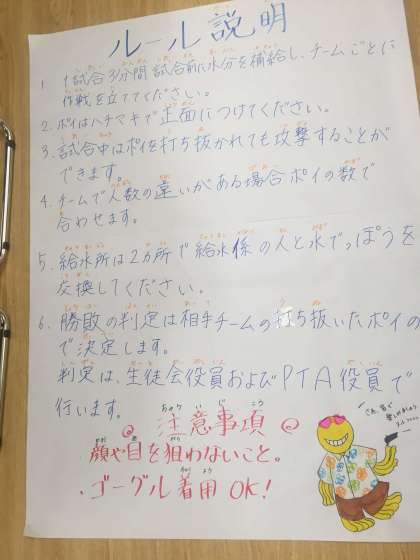 ルール説明
1. 1試合3分間 試合前に水分を補給し、チームごとに
作戦を立ててください。
2. ポイはハチマキで正面につけてください。
3. 試合中はポイを打ち抜かれても攻撃することが
できます。
4. チームで人数の違いがある場合ポイの数で
合わせます。
5. 給水所は2カ所で給水係の人と水でっぽうを
交換してください。
6. 勝敗の判定は相手チームの打ち抜いたポイの
で決定します。
判定は、生徒会役員およびPTA役員で
行います。
注意事項
・顔や目を狙わないこと。
・ゴーグル着用OK!